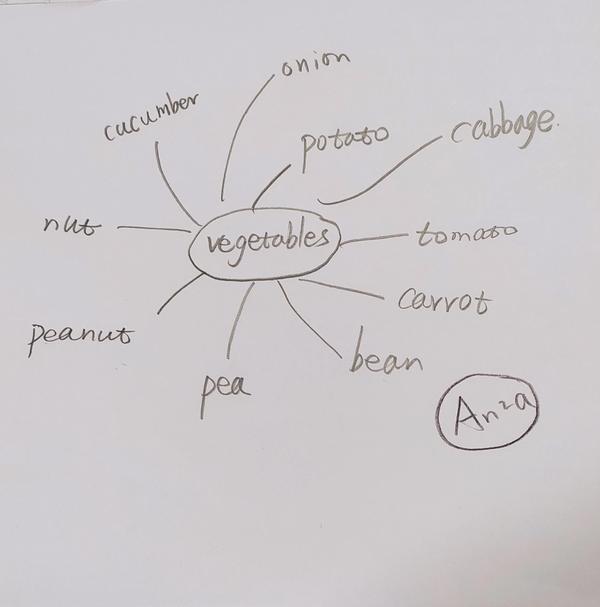 onion
cucumber
potato
cabbage.
nut
vegetables
tomato
carrot
peanut
bean
pea